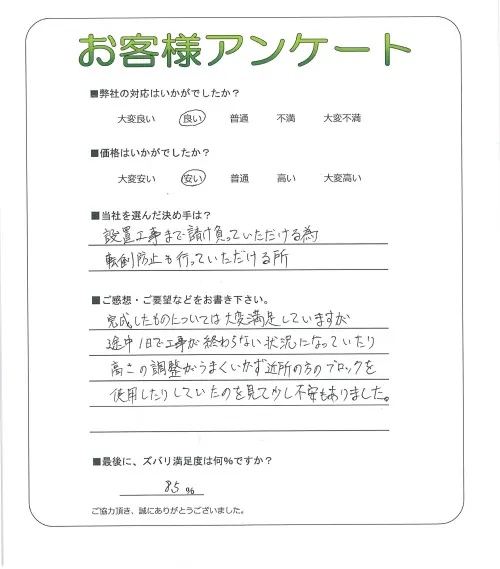 お客様アンケート
■弊社の対応はいかがでしたか？
大変良い 良い 普通 不満 大変不満
■価格はいかがでしたか？
大変安い 安い 普通 高い 大変高い
■当社を選んだ決め手は？
設置工事まで請け負っていただける為
転倒防止も行っていただける所
■ご感想・ご要望などをお書き下さい。
完成したものについては大変満足していますが
途中1日で工事が終わらない状況になっていたり
高さの調整がうまくいかず近所の方のブロックを
使用したりしていたのを見て少し不安もありました。
■最後に、ズバリ満足度は何％ですか？
85 ％
ご協力頂き、誠にありがとうございました。